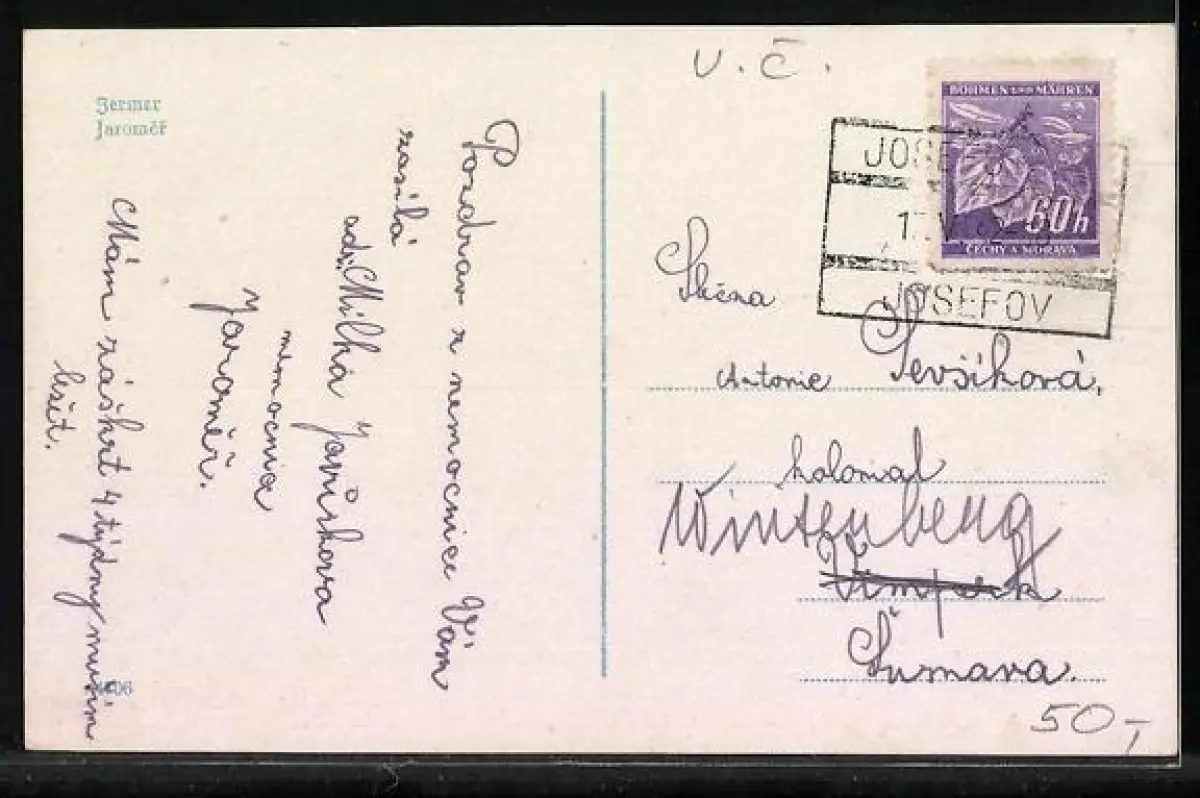 Jermer
Jaroměř
Pozdrav z nemocnice Vám
zasílá
adr. Milka Janišková
nemocnia
Jaroměř.
Mám záškrt 4 týdny musím
ležet.
06
V. Č.
BÖHMEN UND MÄHREN
60h
ČECHY A MORAVA
JOSEFOV
Slečna
Antonie Ševšíková,
kolonial
Winterberg
Vimperk
Šumava.
50,-